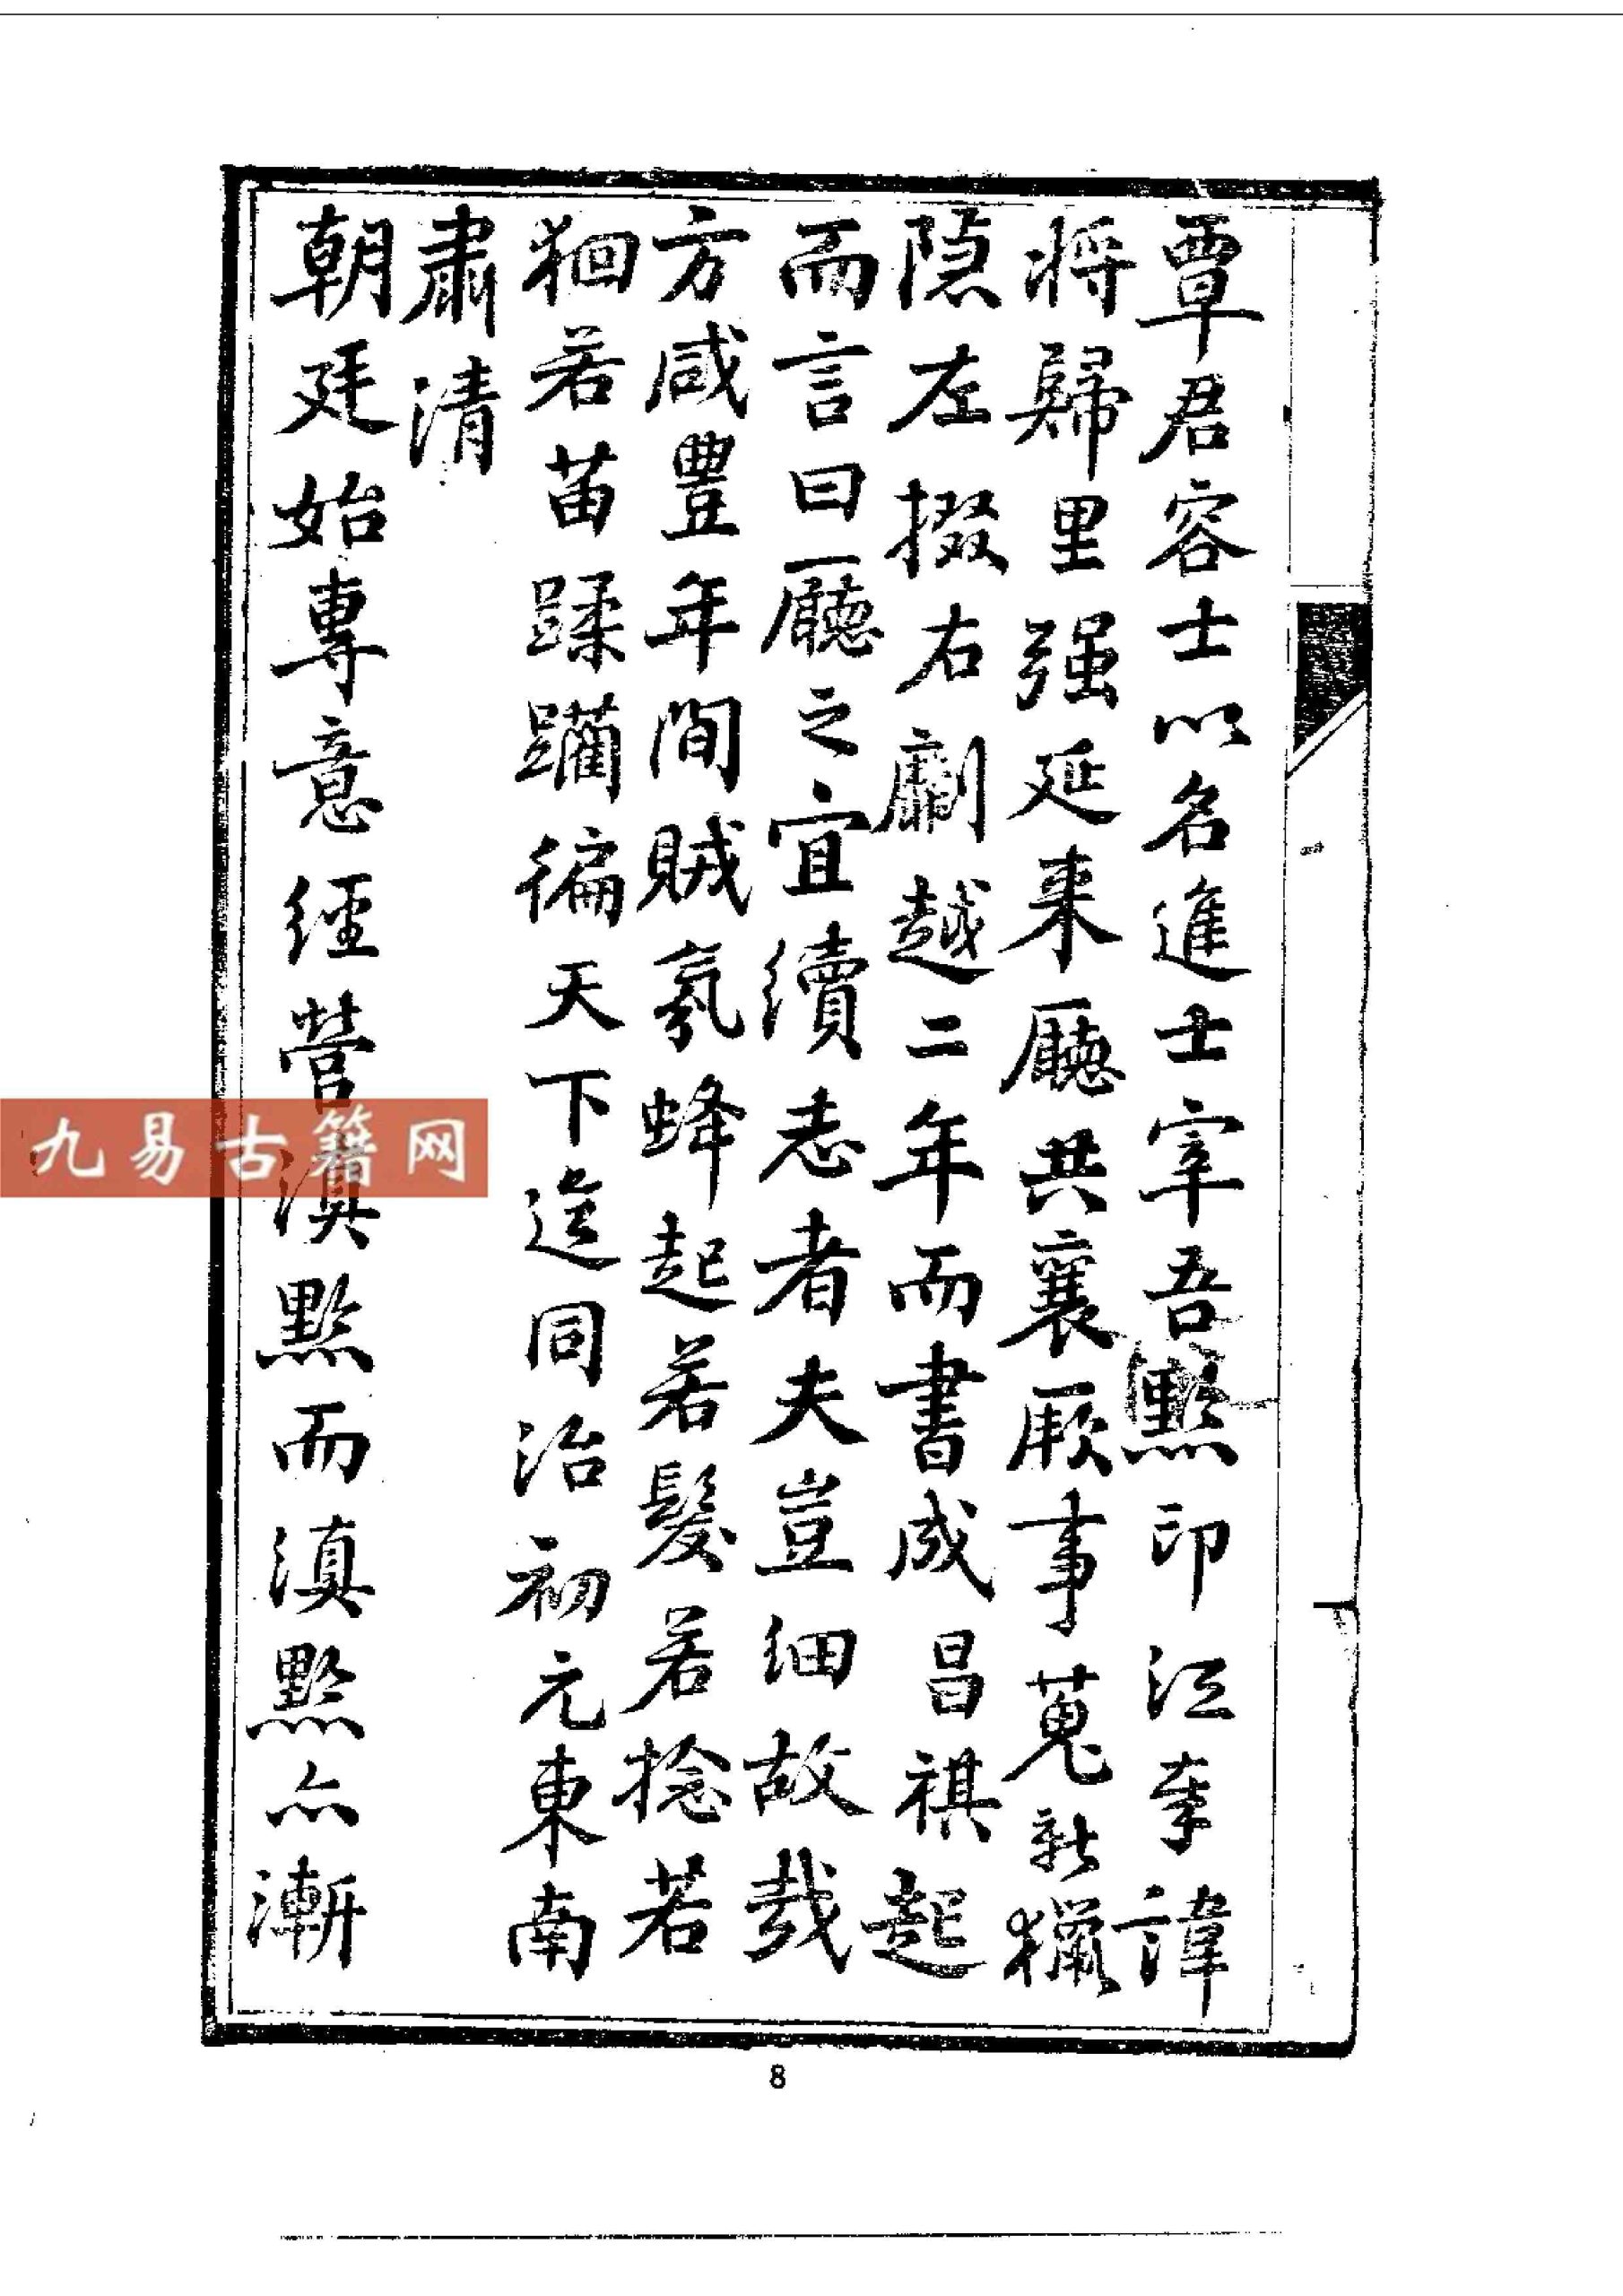 覃君容士以名進士宰吾黔印江奉諱
將歸里强延来廳共襄厥事蒐新獵
隱左掇右劘越二年而書成昌祺起
而言曰廳之宜續志者夫豈細故哉
方咸豐年間賊氛蜂起若髮若捻若
狪若苗蹂躪徧天下迨同治初元東南
肅清
朝廷始專意經營滇黔而滇黔亦漸
九易古籍网
8